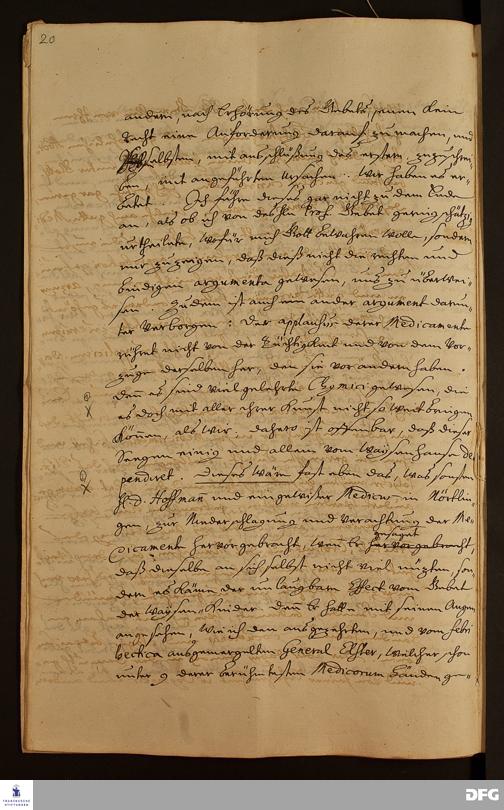 20
andern, nach Erhörung des Gebets, jenem kein
Recht eine Anforderung daraus zu machen, und
selbsten, mit ausschlüßung des erstern, zuzuschrei-
ben, mit angeführten Ursachen. Wir haben es er-
betet. Ich führe dieses gar nicht zu dem Ende
an, als ob ich von des Hn Prof. Gebet gering schätzig
urtheilete, wofür mich Gott bewahren wolle, sondern
nur zu zeigen, daß dieß nicht die rechten und
bündigen argumenta gewesen, uns zu überwei-
sen. Zudem ist auch ein ander argument darun-
ter verborgen: Der applausus derer Medicamente
rühret nicht von der Tüchtigkeit und von dem Vor-
zuge derselben her, den sie vor andern haben.
Denn es sind viel gelehrte Chymici gewesen, die
es doch mit aller ihrer Kunst nicht so weit bringen
können, als wir. dahero ist offenbar, daß dieser
Seegen einig und allein vom Waysenhause de-
pendiret. Dieses wäre fast eben das, was sonsten
H. D. Hoffman und ein gewisser Medicus in Nördlin-
gen, zur Niederschlagung und Verachtung der Me-
dicamente hervorgebracht, wenn Er gesaget
daß dieselbe an sich selbst nicht viel nutzten, son-
dern es käme der unlaugbare Effect vom Gebet
der Waysen-Kinder. denn Er hatte mit seinen Augen
angesehen, wie ich den ausgezehrten, und von febri
hectica ausgemergelten General Elster, welcher schon
unter 9 derer berühmtesten Medicorum Händen ge-
FRANCKESCHE STIFTUNGEN
DFG